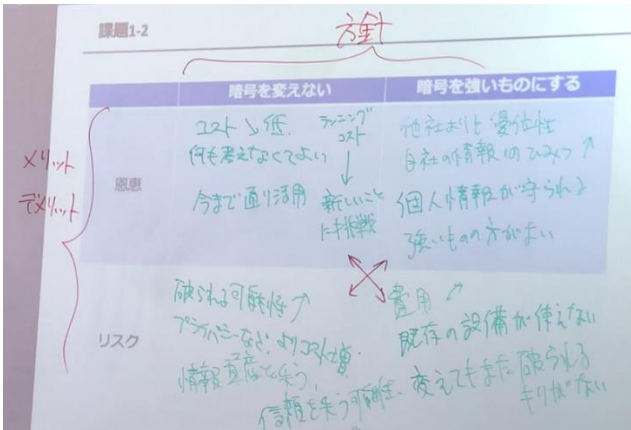 課題1-2
方針
暗号を変えない
暗号を強いものにする
メリット
デメリット
恩恵
コスト↘低
何も考えなくてよい
今まで通り活用
ランニング
コスト
↓
新しいこと
に挑戦
他社よりも優位性
自社の情報のひみつ↑
個人情報が守られる
強いものの方がよい
リスク
破られる可能性↗
プライバシーなど、よりコスト増.
情報資産を失う,
信頼を失う可能性.
費用↗
既存の設備が使えない
変えてもまた破られる
キリがない